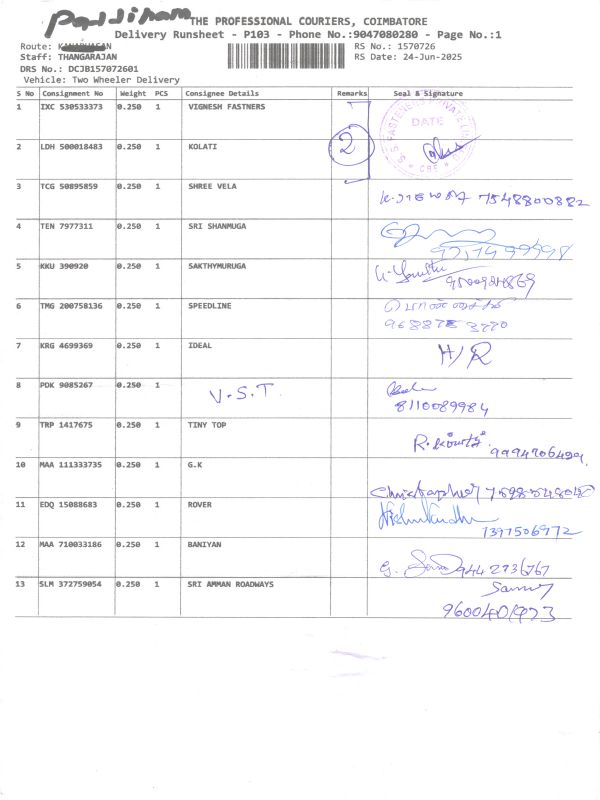 Paddiham
THE PROFESSIONAL COURIERS, COIMBATORE
Delivery Runsheet - P103 - Phone No.:9047080280 - Page No.:1
Route:
RS No.: 1570726
Staff: THANGARAJAN
RS Date: 24-Jun-2025
DRS No.: DCJB157072601
Vehicle: Two Wheeler Delivery
S No Consignment No Weight PCS Consignee Details Remarks Seal & Signature
1 IXC 530533373 0.250 1 VIGNESH FASTNERS
DATE
2 LDH 500018483 0.250 1 KOLATI 2
CBE
3 TCG 50895859 0.250 1 SHREE VELA
7548800382
4 TEN 7977311 0.250 1 SRI SHANMUGA
5 KKU 390920 0.250 1 SAKTHYMURUGA
6 TMG 200758136 0.250 1 SPEEDLINE
7 KRG 4699369 0.250 1 IDEAL H/R
8 PDK 9085267 0.250 1 V.S.T.
8110089984
9 TRP 1417675 0.250 1 TINY TOP
10 MAA 111333735 0.250 1 G.K
Christopher
11 EDQ 15088683 0.250 1 ROVER
12 MAA 710033186 0.250 1 BANIYAN
13 SLM 372759054 0.250 1 SRI AMMAN ROADWAYS